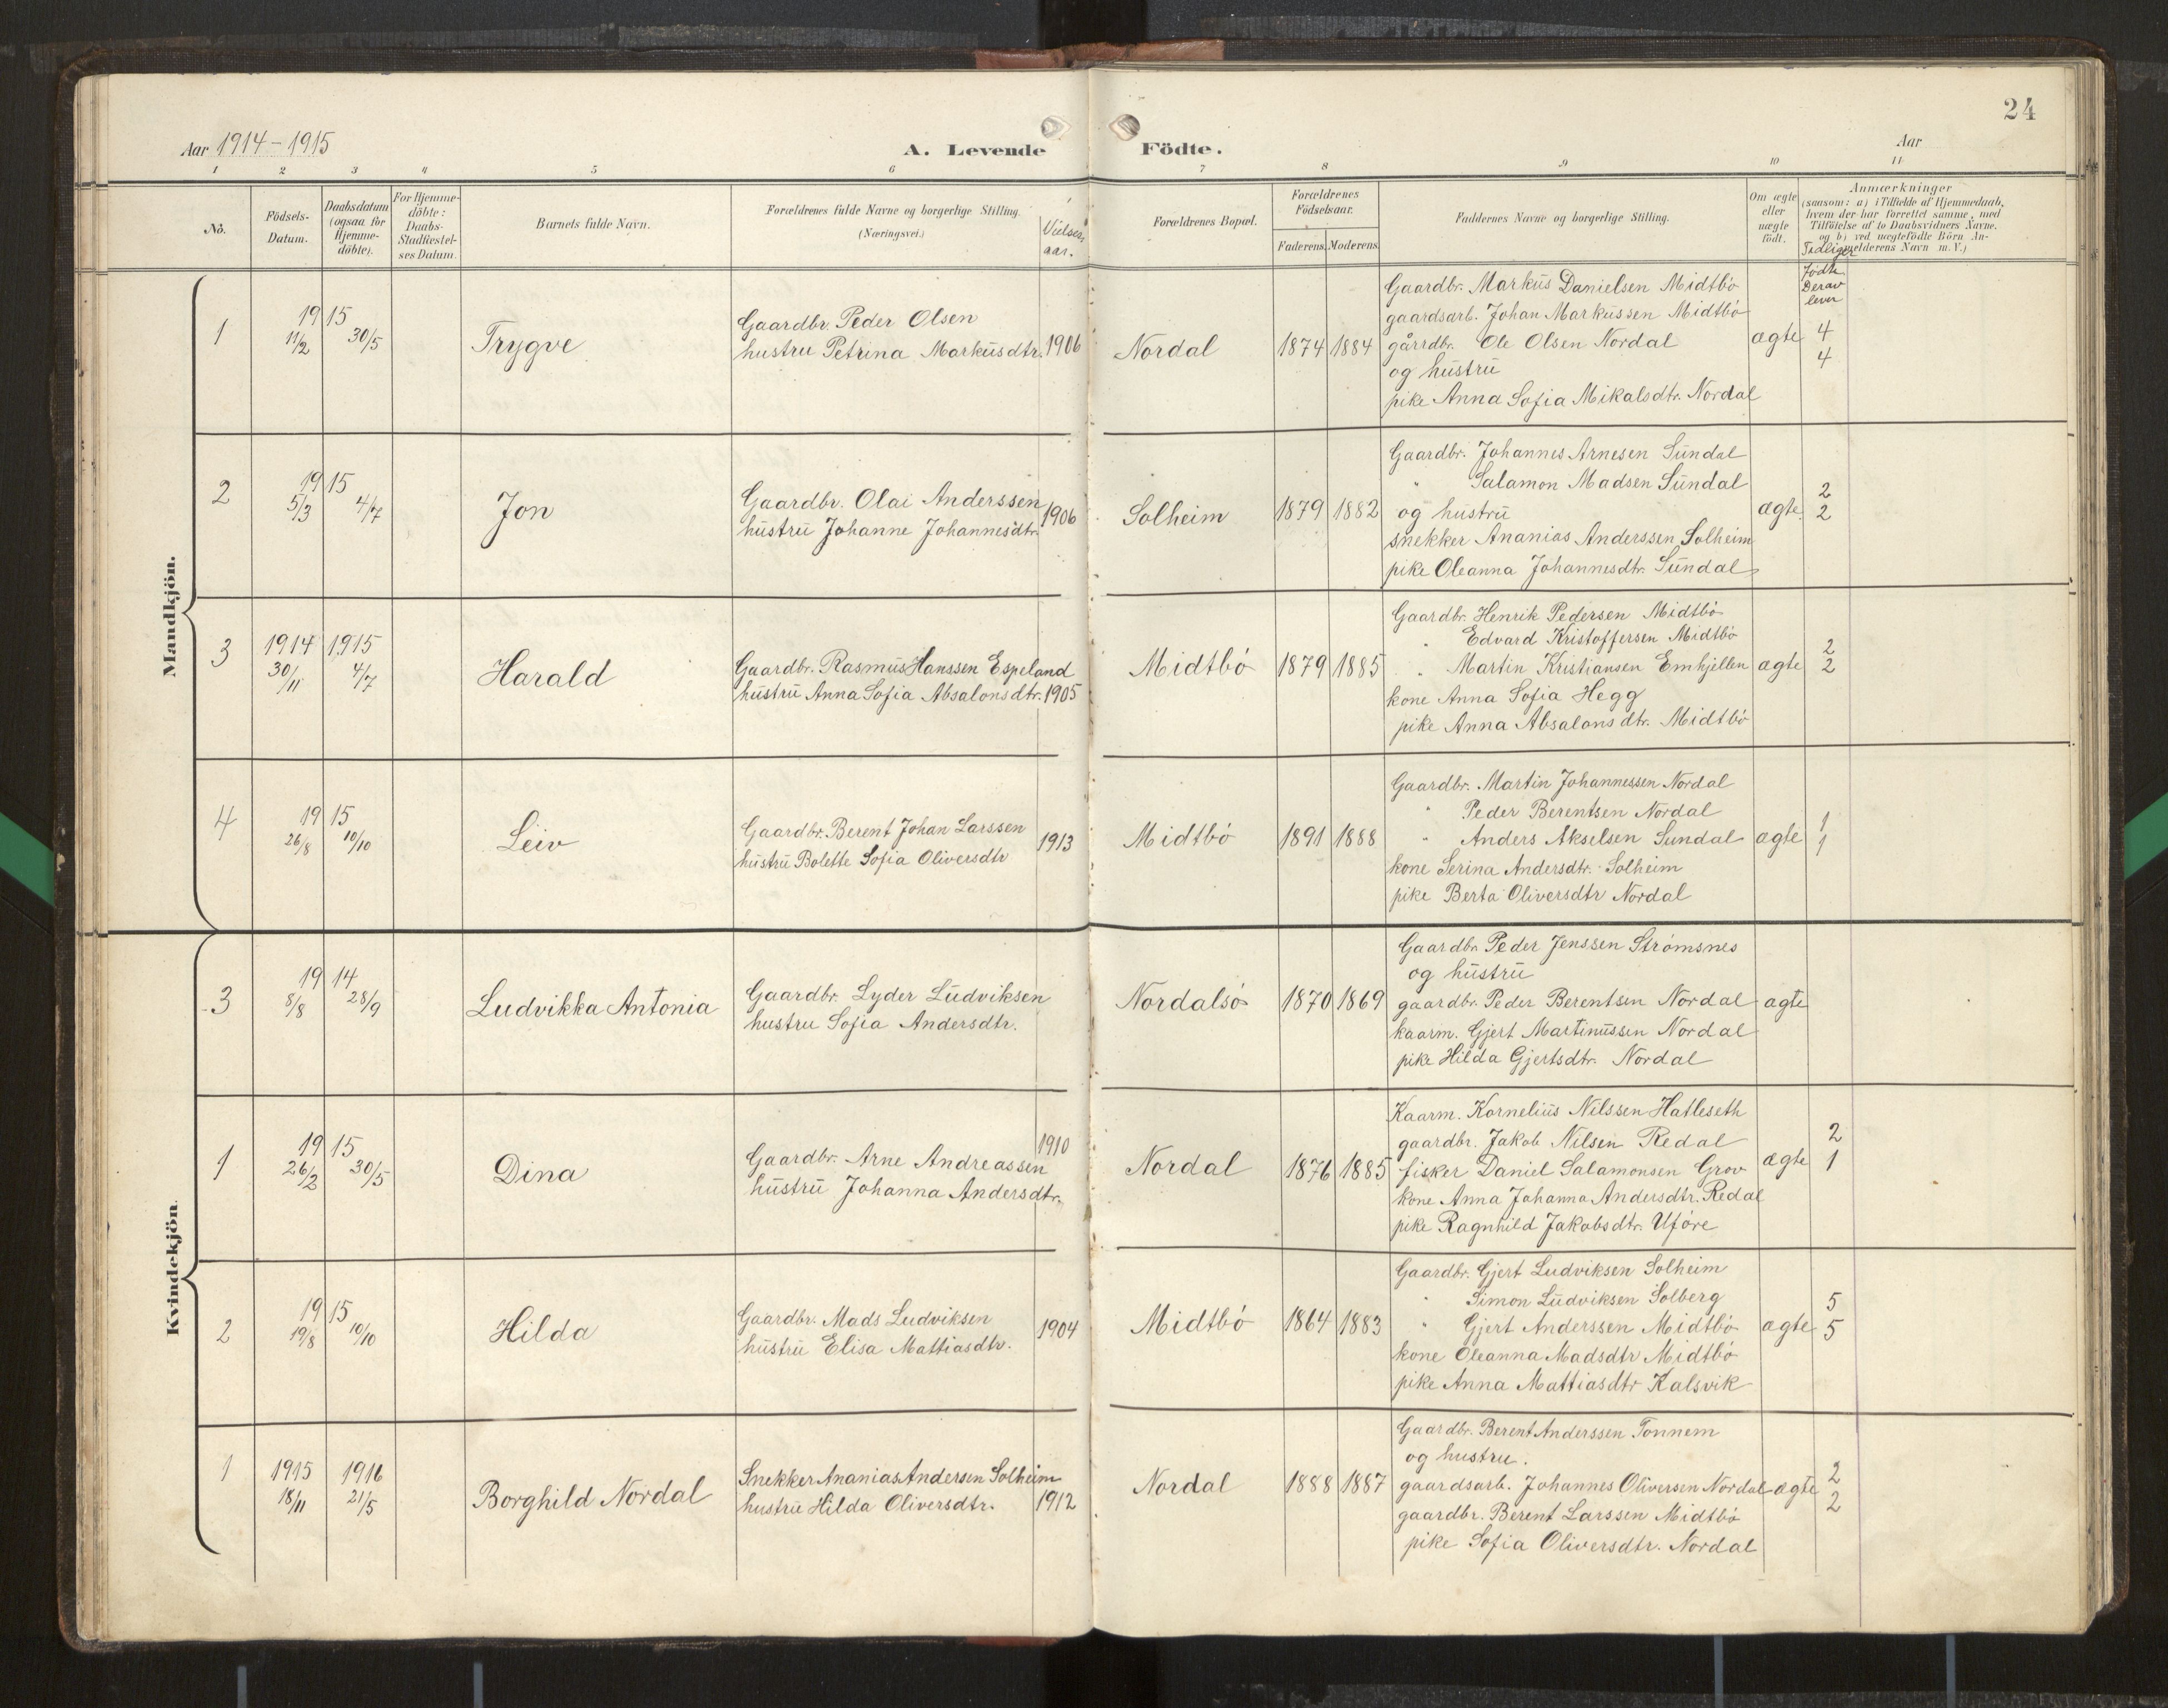 24
Aar 1914-1915
A. Levende Födte.
Aar
1 2 3 4 5 6 7 8 9 10 11
No.
Födsels-Datum.
Daabsdatum (ogsaa for Hjemme-döbte).
For Hjemme-döbte: Daabs-Stadfæstel-ses Datum.
Barnets fulde Navn.
Forældrenes fulde Navne og borgerlige Stilling.
(Næringsvei.)
Vielses aar.
Forældrenes Bopæl.
Forældrenes Födselsaar.
Faderens. Moderens.
Faddernes Navne og borgerlige Stilling.
Om ægte eller uægte födt.
Anmærkninger
(saasom: a) i Tilfælde af Hjemmedaab, hvem der har forrettet samme, med Tilföielse af to Daabsvidners Navne. og b) ved uægtefödte Börn An-melderens Navn m. V.)
Tidligere
Födte
Derav
lever
Mandkjön.
1
1915
11/2 30/5
Trygve
Gaardbr. Peder Olsen
hustru Petrina Markusdtr. 1906
Nordal
1874 1884
Gaardbr. Markus Danielsen Midtbö
gaardsarb. Johan Markussen Midtbö
gårdbr. Ole Olsen Nordal
og hustru
pike Anna Sofia Mikalsdtr. Nordal
ægte
4
4
2
1915
5/3 4/7
Jon
Gaardbr. Olai Anderssen
hustru Johanne Johannesdtr. 1906
Solheim
1879 1882
Gaardbr. Johannes Arnesen Sundal
" Salamon Madsen Sundal
og hustru
snekker Ananias Anderssen Solheim
pike Oleanna Johannesdtr. Sundal
ægte.
2
2
3
1914 1915
30/11 4/7
Harald
Gaardbr. Rasmus Hanssen Espeland
hustru Anna Sofia Absalonsdtr. 1905
Midtbö
1879 1885
Gaardbr. Henrik Pedersen Midtbö
" Edvard Kristoffersen Midtbö
" Martin Kristiansen Emhjellen
kone Anna Sofia Hegg
pike Anna Absalonsdtr. Midtbö
ægte
2
2
4
1915
26/8 10/10
Leiv
Gaardbr. Berent Johan Larssen
hustru Bolette Sofia Oliversdtr 1913
Midtbö
1891 1888
Gaardbr. Martin Johannessen Nordal
" Peder Berentsen Nordal
" Anders Akselsen Sundal
kone Serina Andersdtr. Solheim
pike Berta Oliversdtr Nordal
ægte
1
1
Kvindekjön.
3
1914
8/8 28/9
Ludvikka Antonia
Gaardbr. Lyder Ludviksen
hustru Sofia Andersdtr.
Nordalsö
1870 1869
Gaardbr. Peder Jenssen Strömsnes
og hustru
gaardbr. Peder Berentsen Nordal
kaarm. Gjert Martinussen Nordal
pike Hilda Gjertsdtr. Nordal
ægte
1
1915
26/2 30/5
Dina
1910
Gaardbr. Arne Andreassen
hustru Johanna Andersdtr.
Nordal
1876 1885
Kaarm. Kornelius Nilssen Hatleseth
gaardbr. Jakob Nilsen Redal
fisker Daniel Salamonsen Grov
kone Anna Johanna Andersdtr. Redal
pike Ragnhild Jakobsdtr. Uföre
ægte
2
1
2
1915
19/8 10/10
Hilda
Gaardbr. Mads Ludviksen
hustru Elisa Mattiasdtr. 1904
Midtbö
1864 1883
Gaardbr. Gjert Ludviksen Solheim
" Simon Ludviksen Solberg
" Gjert Anderssen Midtbö
kone Oleanna Madsdtr Midtbö
pike Anna Mattiasdtr Kalsvik
ægte
5
5
1
1915 1916
18/11 21/5
Borghild Nordal
Snekker Ananias Andersen Solheim
hustru Hilda Oliversdtr. 1912
Nordal
1888 1887
Gaardbr. Berent Anderssen Tonnem
og hustru.
gaardsarb. Johannes Oliversen Nordal
gaardbr. Berent Larssen Midtbö
pike Sofia Oliversdtr. Nordal
ægte
2
2